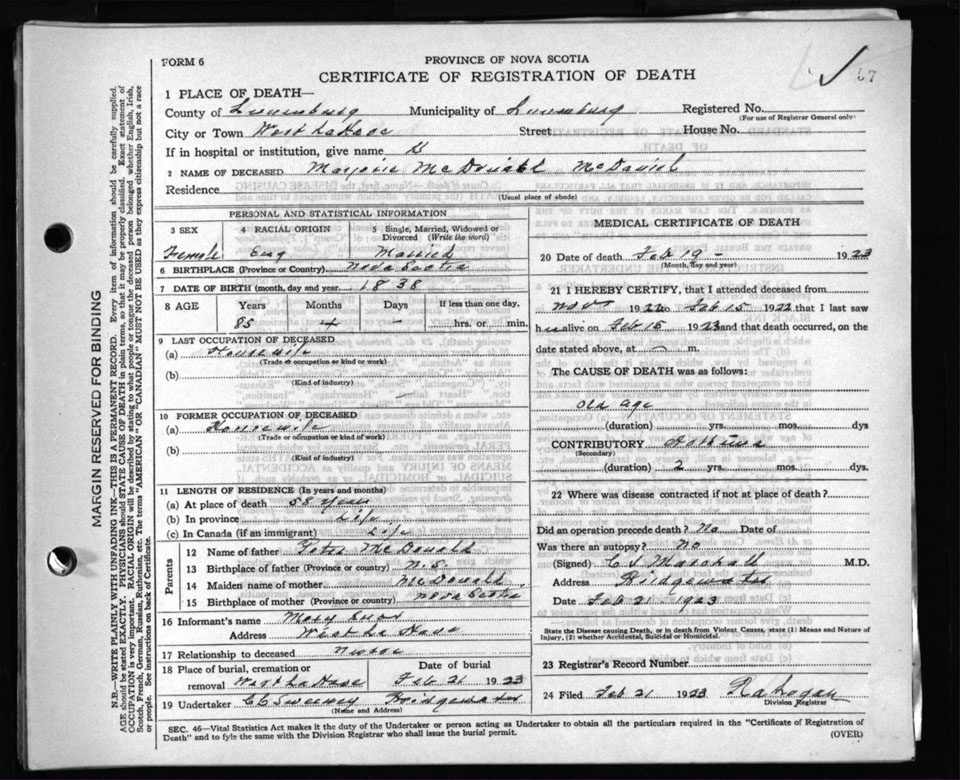 67
FORM 6
PROVINCE OF NOVA SCOTIA
CERTIFICATE OF REGISTRATION OF DEATH
1 PLACE OF DEATH—
County of Lunenburg Municipality of Lunenburg Registered No.
(For use of Registrar General only)
City or Town West LaHave Street House No.
If in hospital or institution, give name
2 NAME OF DECEASED Marjorie McDonald McDaniel
Residence
(Usual place of abode)
PERSONAL AND STATISTICAL INFORMATION
3 SEX 4 RACIAL ORIGIN 5 Single, Married, Widowed or Divorced (Write the word)
Female Eng Married
6 BIRTHPLACE (Province or Country) Nova Scotia
7 DATE OF BIRTH (month, day and year) 1838
8 AGE Years Months Days If less than one day,
85 — hrs. or min.
9 LAST OCCUPATION OF DECEASED
(a) Housewife
(Trade or occupation or kind or work)
(b)
(Kind of industry)
10 FORMER OCCUPATION OF DECEASED
(a) Housewife
(Trade or occupation or kind of work)
(b)
(Kind of industry)
11 LENGTH OF RESIDENCE (In years and months)
(a) At place of death 55 years
(b) In province Life
(c) In Canada (if an immigrant) Life
Parents
12 Name of father Peter McDonald
13 Birthplace of father (Province or country) N.S.
14 Maiden name of mother McDonald
15 Birthplace of mother (Province or country) Nova Scotia
16 Informant's name Mary
Address West La Have
17 Relationship to deceased
18 Place of burial, cremation or removal West La Have Date of burial Feb 21 1923
19 Undertaker CC Sweeney Bridgewater
(Name and Address)
MEDICAL CERTIFICATE OF DEATH
20 Date of death Feb 19 – 1923
(Month, day and year)
21 I HEREBY CERTIFY, that I attended deceased from
Nov 1922 to Feb 15 1922 that I last saw
h alive on Feb 15 1923 and that death occurred, on the
date stated above, at — m.
The CAUSE OF DEATH was as follows:
Old age
(duration) yrs. mos. dys
CONTRIBUTORY Asthma
(Secondary)
(duration) 2 yrs. mos. dys.
22 Where was disease contracted if not at place of death?
Did an operation precede death? No Date of
Was there an autopsy? No
(Signed) C S Marshall M.D.
Address Bridgewater
Date Feb 21 1923
State the Disease causing Death, or in death from Violent Causes, state (1) Means and Nature of Injury, (2) whether Accidental, Suicidal or Homicidal.
23 Registrar's Record Number
24 Filed Feb 21 1923 R a Logan
Division Registrar
SEC. 46—Vital Statistics Act makes it the duty of the Undertaker or person acting as Undertaker to obtain all the particulars required in the "Certificate of Registration of
Death" and to fyle the same with the Division Registrar who shall issue the burial permit. (OVER)
MARGIN RESERVED FOR BINDING
N.B.—WRITE PLAINLY WITH UNFADING INK—THIS IS A PERMANENT RECORD. Every item of information should be carefully supplied.
AGE should be stated EXACTLY. PHYSICIANS should STATE CAUSE OF DEATH in plain terms, so that it may be properly classified. Exact statement of
OCCUPATION is very important. RACIAL ORIGIN will be described by stating to what people or tongue the deceased person belonged whether English, Irish,
Scotch, French, German, Russian, Ruthenian, etc. The terms "AMERICAN" or "CANADIAN" MUST NOT BE USED as they express citizenship but not a race
or people. See instructions on back of Certificate.